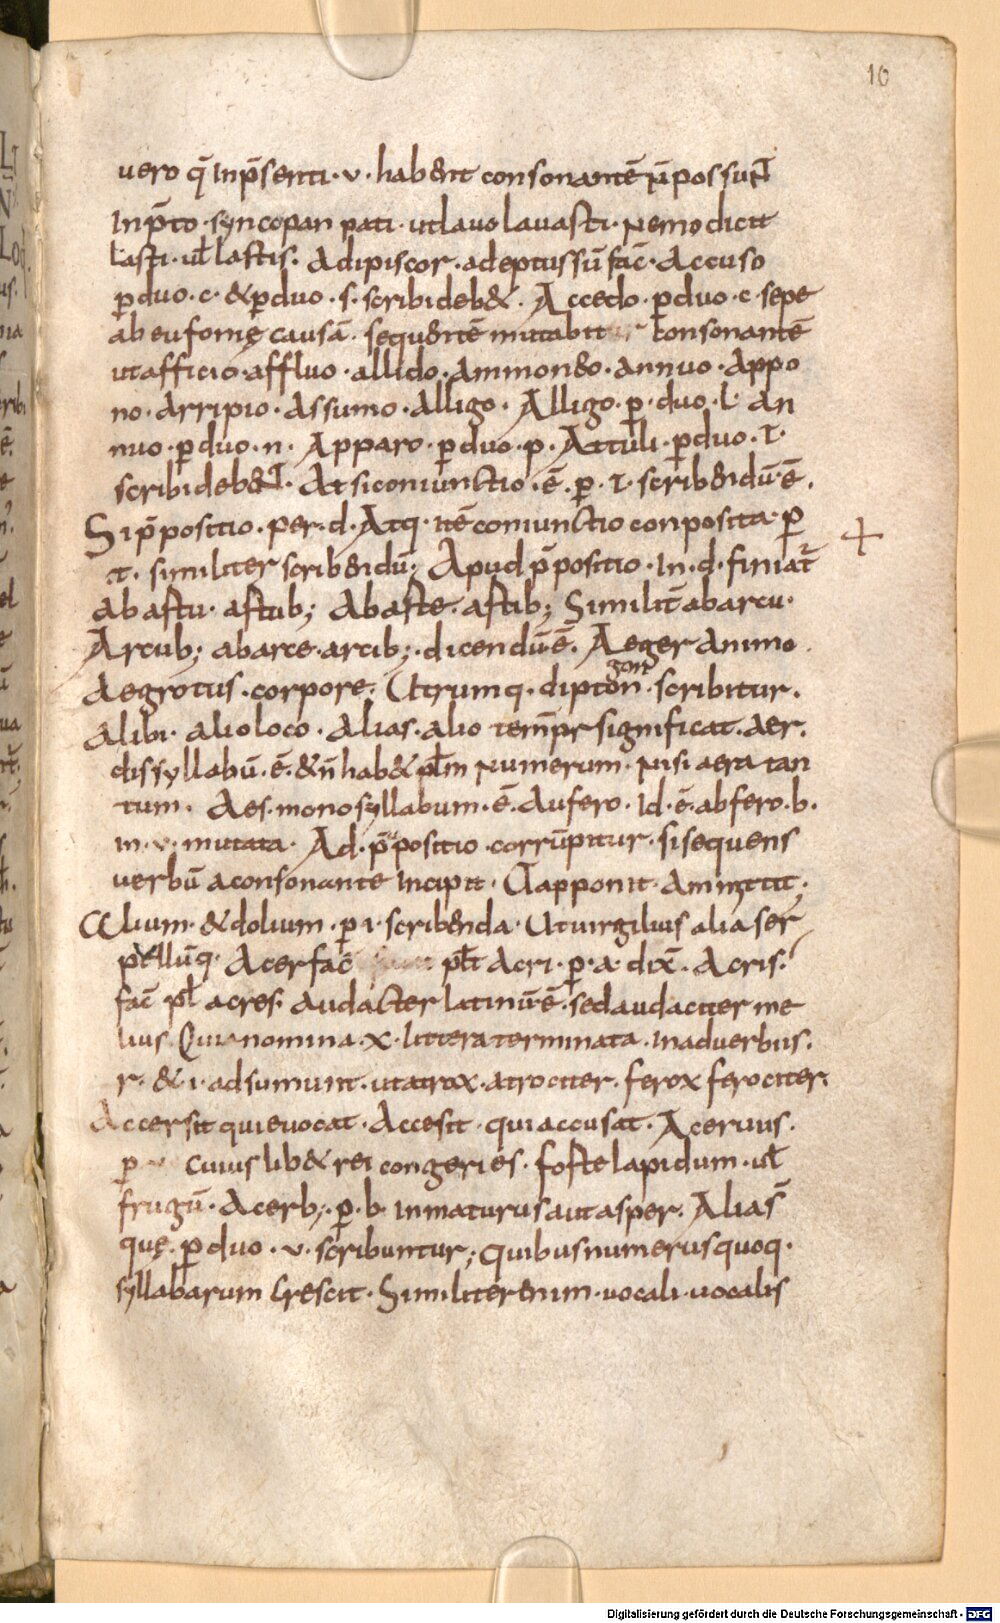 10
uero q̄ inp̄senti · v · hab&nt consonantē n̄ possunt
inp̄to · syncopan pati · ut lauo lauasti · nemo dicit
lasti · ul̄ lastis. Adipiscor · adeptus sū fac̄ · Accuso
p̱ duo · c · & p̱ duo · s · scribi deb&. Accedo · p̱ duo · c · sepe
ab eufonię causā · sequentē mutabit consonantē
ut afficio · affluo · allido · ammoneo · annuo · appo
no · arripio · assumo · alligo. Alligo · p̱ · duo · l · an
nuo · p̱ duo · n · Apparo · p̱ duo · p · Attuli · p̱ duo · t ·
scribi deb&. At si coniunctio · ē · p̱ · t · scribendū · ē.
Si p̄positio · per · d · Atq · itē coniunctio conposita · p̱
t · similiter scribendū. Apud p̄positio · in · d · finiat̄
ab astu · astub; Ab aste · astib; Similit̄ ab arcu ·
Arcub; ab arce · arcib; dicendū ē. Aeger animo.
Aegrotus · corpore. Utrumq · diptongon · scribitur.
Alibi · alio loco · Alias · alio temp̄r significat · Aer.
dissyllabū · ē · & n̄ hab& pl̄m numerum · nisi aera tan
tum. Aes · monosyllabum · ē · Aufero · id · ē · abfero · b ·
in · v · mutata · Ad · p̄positio · corrūpitur · si sequens
uerbū a consonante incipit · Ut apponit · Amittit;
Alium · & dolium · p̱ · i · scribenda · Ut uirgilius alia ser
pillūq · Acer fac̄ pl̄t acri · p̱ · a · dix̄ · Acris.
fac̄ pl̄ acres. Audacter latinū ē · sed audaciter me
lius Quia nomina · x · littera terminata · in aduerbiis.
r · & i · adsumunt · ut atrox · atrociter · ferox ferociter.
Accersit qui euocat · Accesit · qui accusat · Aceruus.
p̱ cuius lib& rei congeries · foste lapidum · ul̄
frugū · Acerb; p̱ · b · inmaturus aut asper. Alias
quę · p̱ duo · v · scribuntur; quibus numerus quoq ·
syllabarum crescit · Similiter enim · uocali · uocalis
Digitalisierung gefördert durch die Deutsche Forschungsgemeinschaft - DFG